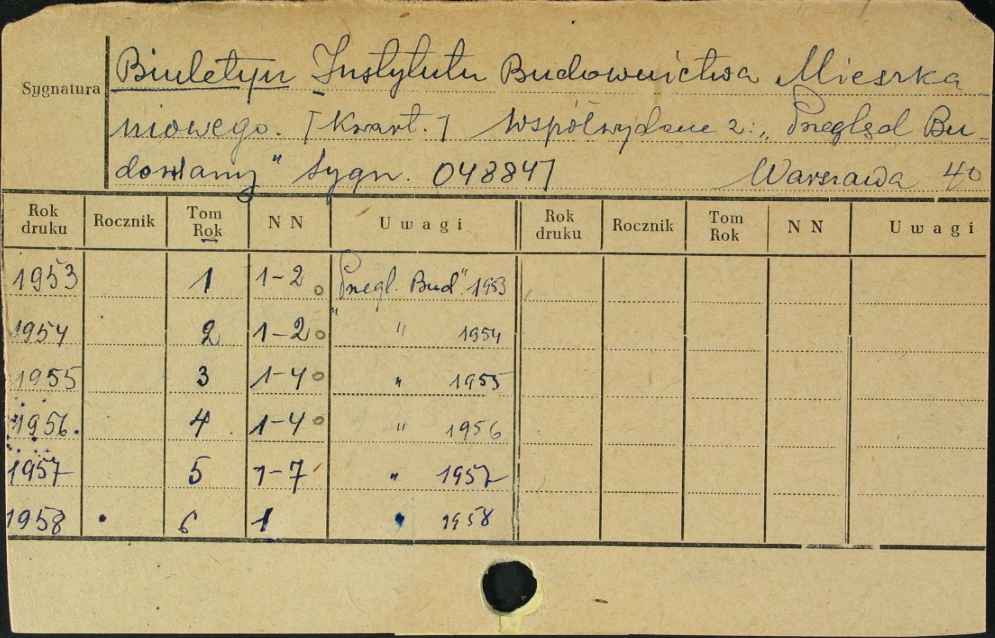 Sygnatura
Biuletyn Instytutu Budownictwa Mieszka-
niowego. [Kwart.] Współwydane z: „Przegląd Bu-
dowlany" Sygn. 048847 Warszawa 40
Rok druku Rocznik Tom Rok N N Uwagi Rok druku Rocznik Tom Rok N N Uwagi
1953 1 1-2 „Przegl. Bud" 1953
1954 2 1-2 " 1954
1955 3 1-4 " 1955
1956. 4 1-4 " 1956
1957 5 1-7 " 1957
1958 6 1 " 1958